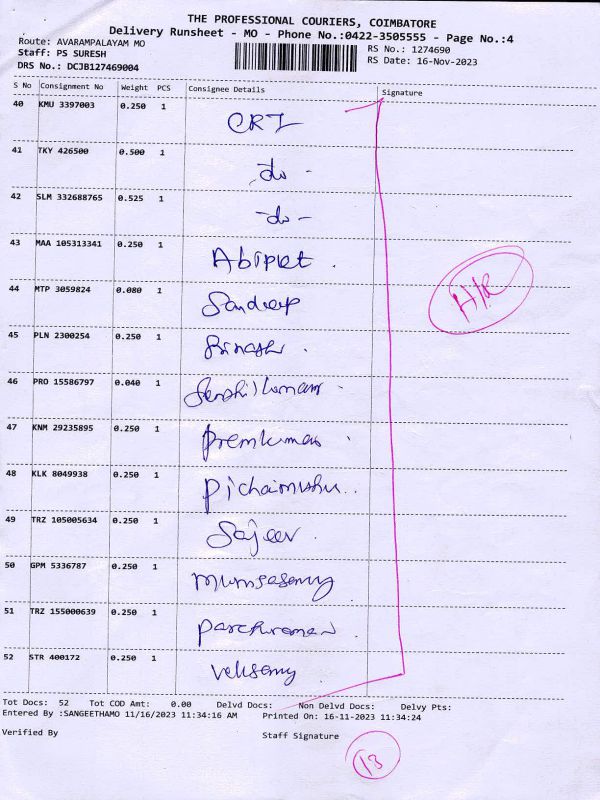 THE PROFESSIONAL COURIERS, COIMBATORE
Delivery Runsheet - MO - Phone No.:0422-3505555 - Page No.:4
Route: AVARAMPALAYAM MO
RS No.: 1274690
Staff: PS SURESH
RS Date: 16-Nov-2023
DRS No.: DCJB127469004
S No Consignment No Weight PCS Consignee Details Signature
40 KMU 3397003 0.250 1 CRI
41 TKY 426500 0.500 1 -do-
42 SLM 332688765 0.525 1 -do-
43 MAA 105313341 0.250 1
44 MTP 3059824 0.080 1 Sandeep
45 PLN 2300254 0.250 1
46 PRO 15586797 0.040 1
47 KNM 29235895 0.250 1 Premkumar
48 KLK 8049938 0.250 1
49 TRZ 105005634 0.250 1 Sajeev
50 GPM 5336787 0.250 1
51 TRZ 155000639 0.250 1
52 STR 400172 0.250 1
Tot Docs: 52 Tot COD Amt: 0.00 Delvd Docs: Non Delvd Docs: Delvy Pts:
Entered By :SANGEETHAMO 11/16/2023 11:34:16 AM Printed On: 16-11-2023 11:34:24
Verified By Staff Signature
13